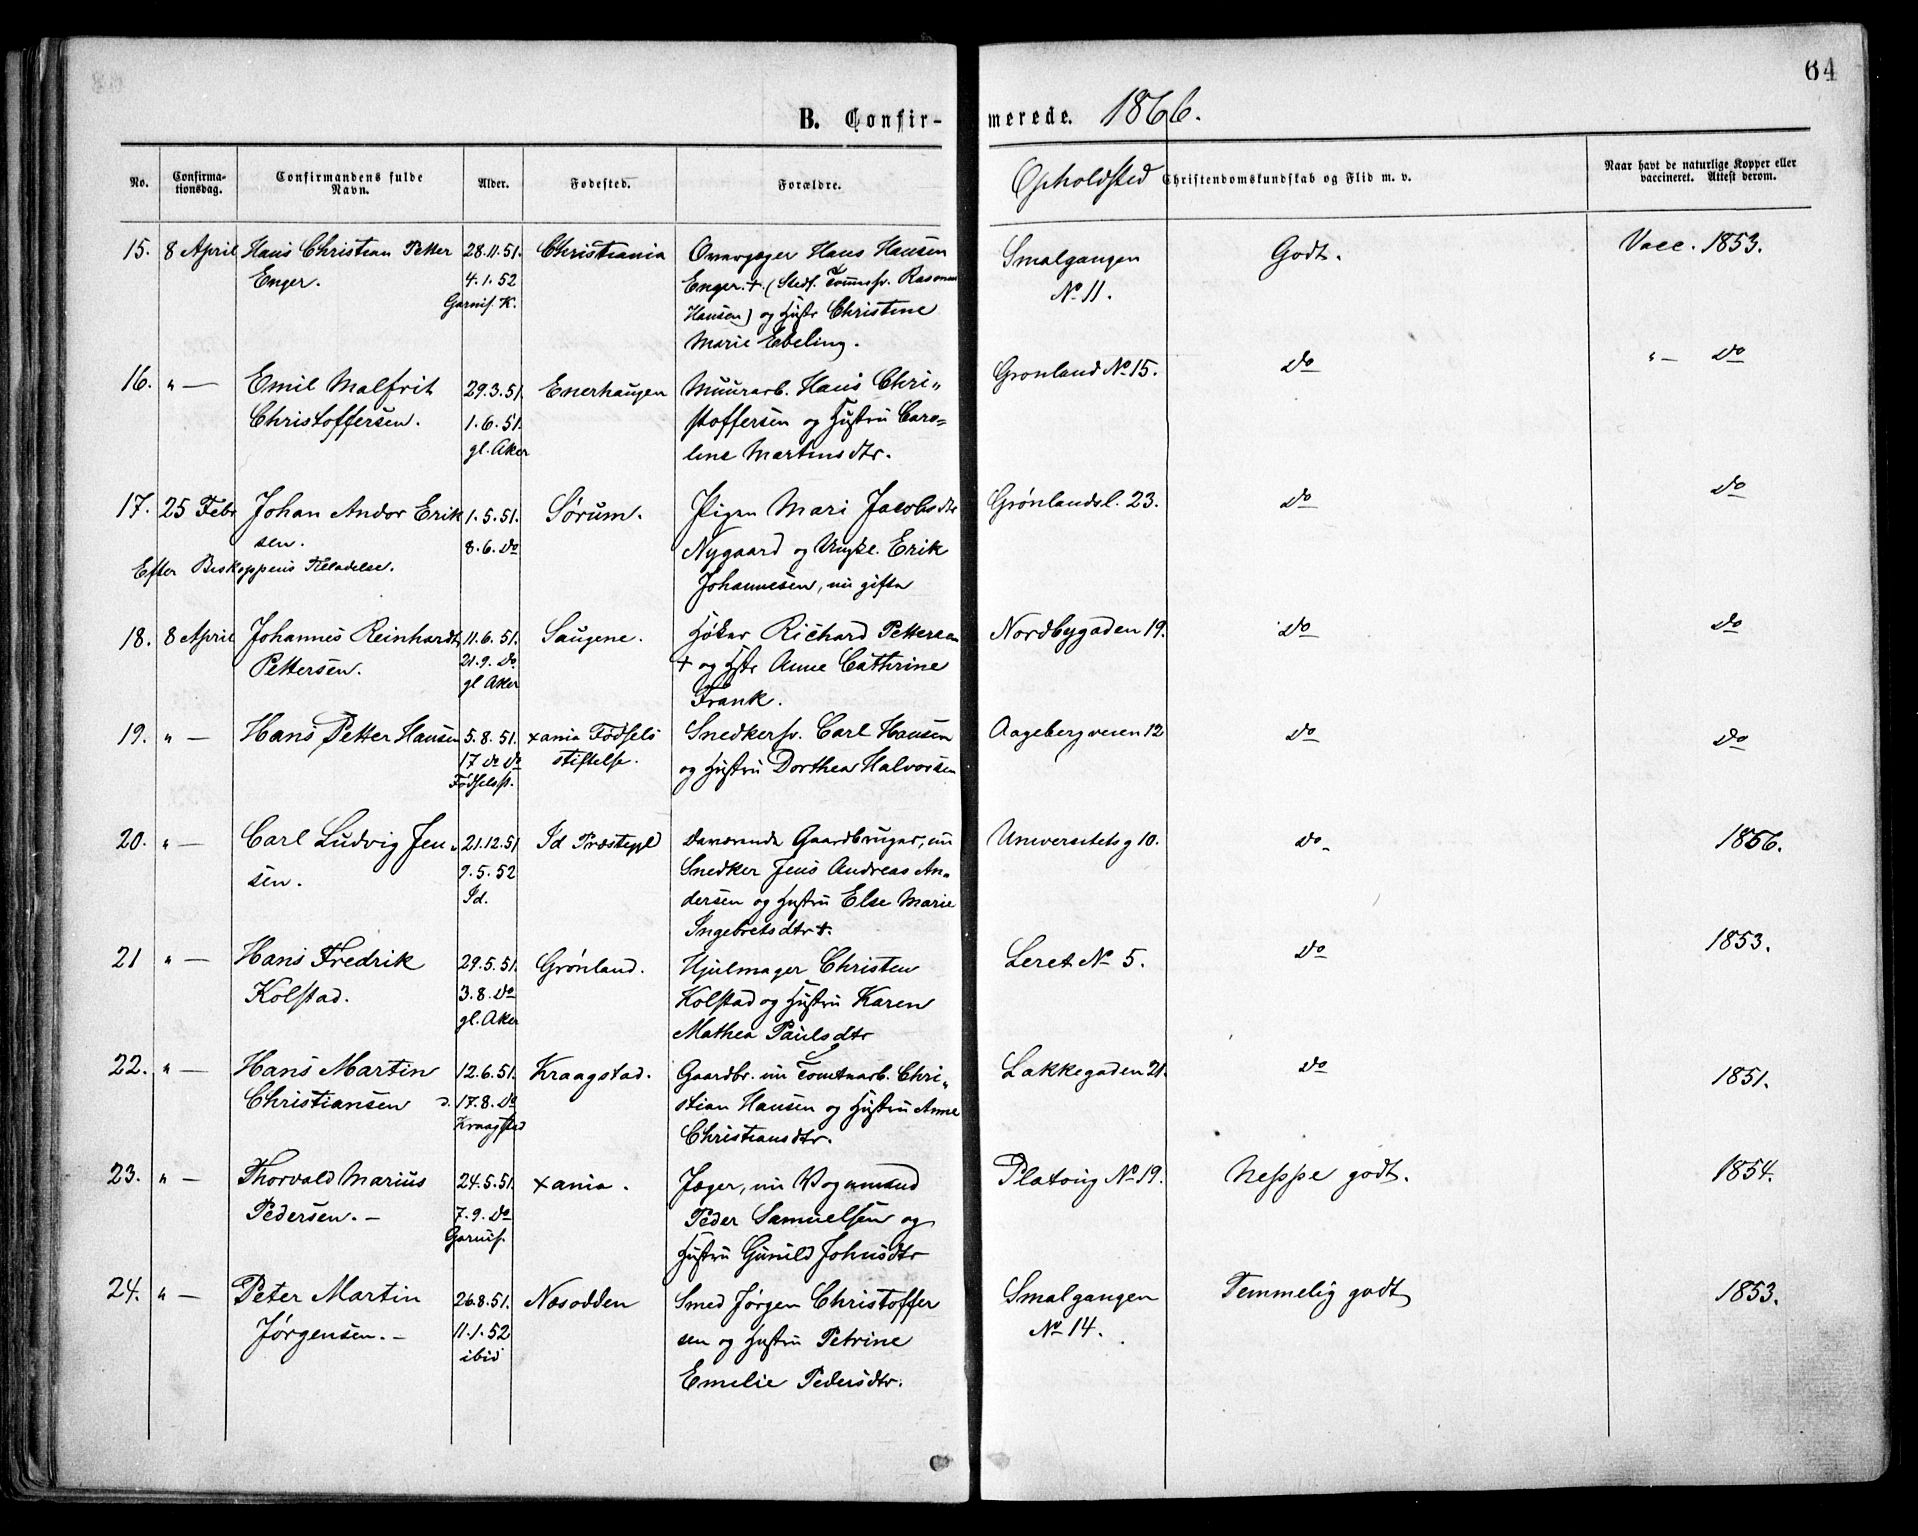 64
B. Confir- merede. 1866.
No. Confirma-tionsdag. Confirmandens fulde Navn. Alder. Fødested. Forældre. Opholdsted Christendomskundskab og Flid m. v. Naar havt de naturlige Kopper eller vaccineret. Attest derom.
15. 8 April Hans Christian Petter 28.11.51. Christiania Hans Hansen Smalgangen Godt. Vacc. 1853.
Enger. 4.1.52 Enger. +. (Stedf. Rasmus No 11.
Garnis. K. Hansen) og Hustr Christine
Marie Ebeling.
16. " — Emil Malfrit 29.3.51. Enerhaugen Muurarb. Hans Chri„ Gronland No 15. do " — do
Christoffersen. 1.6.51. stoffersen og Hustru Caro=
gl. Aker line Martinsdtr.
17. 25 Febr Johan Andor Erik 1.5.51. Sørum. Pigen Mari Jacobsdtr Grønlandsl. 23. do do
sen. 8.6. do Nygaard og Ungke. Erik
Efter Beskoppens Tilladelse. Johannesen, nu gifta
18. 8 April Johannes Reinhardt 11.6.51. Saugene. Høker Richard Pettersen Nordbygaden 19. do do
Pettersen. 21.9. do. + og Hstr Anne Cathrine
gl Aker Frank.
19. " — Hans Petter Hansen 5.8.51. xania Fødsels Snedkersv. Carl Hansen Aagebergveien 12 do do
17 do do stiftelse. og Hustru Dorthea Halvorsen
Fødselsst.
20. " — Carl Ludvig Jen 21.12.51 Id Præstegld daværende Gaardbruger, nu Universitetsg 10. do 1856.
sen. 9.5.52 Snedker Jens Andreas An„
Id. dersen og Hustru Else Marie
Ingebretsdtr +.
21 " — Hans Fredrik 29.5.51. Grønland. Hjulmager Christen Leret No 5. do 1853.
Kolstad. 3.8. do Kolstad og Hustru Karen
gl. Aker Mathea Paulsdtr
22. " — Hans Martin 12.6.51. Kraagstad. Gaardbr. nu Tomtearb. Chri„ Lakkegaden 21. do 1851.
Christiansen 17.8. do stian Hansen og Hustru Anne
Kraagstad Christiansdtr.
23. " — Thorvald Marius 24.5.51. xania. Jæger, nu Vognmand Platoug No 19. Neppe godt. 1854.
Pedersen. — 7.9. do Peder Samuelsen og
Garnis. Hustru Gunild Johnsdtr
24. " — Peter Martin 26.8.51. Nesodden Smed Jørgen Christoffer Smalgangen Temmelig godt 1853.
Jørgensen. — 11.1.52 sen og Hustru Petrine No 14.
ibid Emelie Pedersdtr.